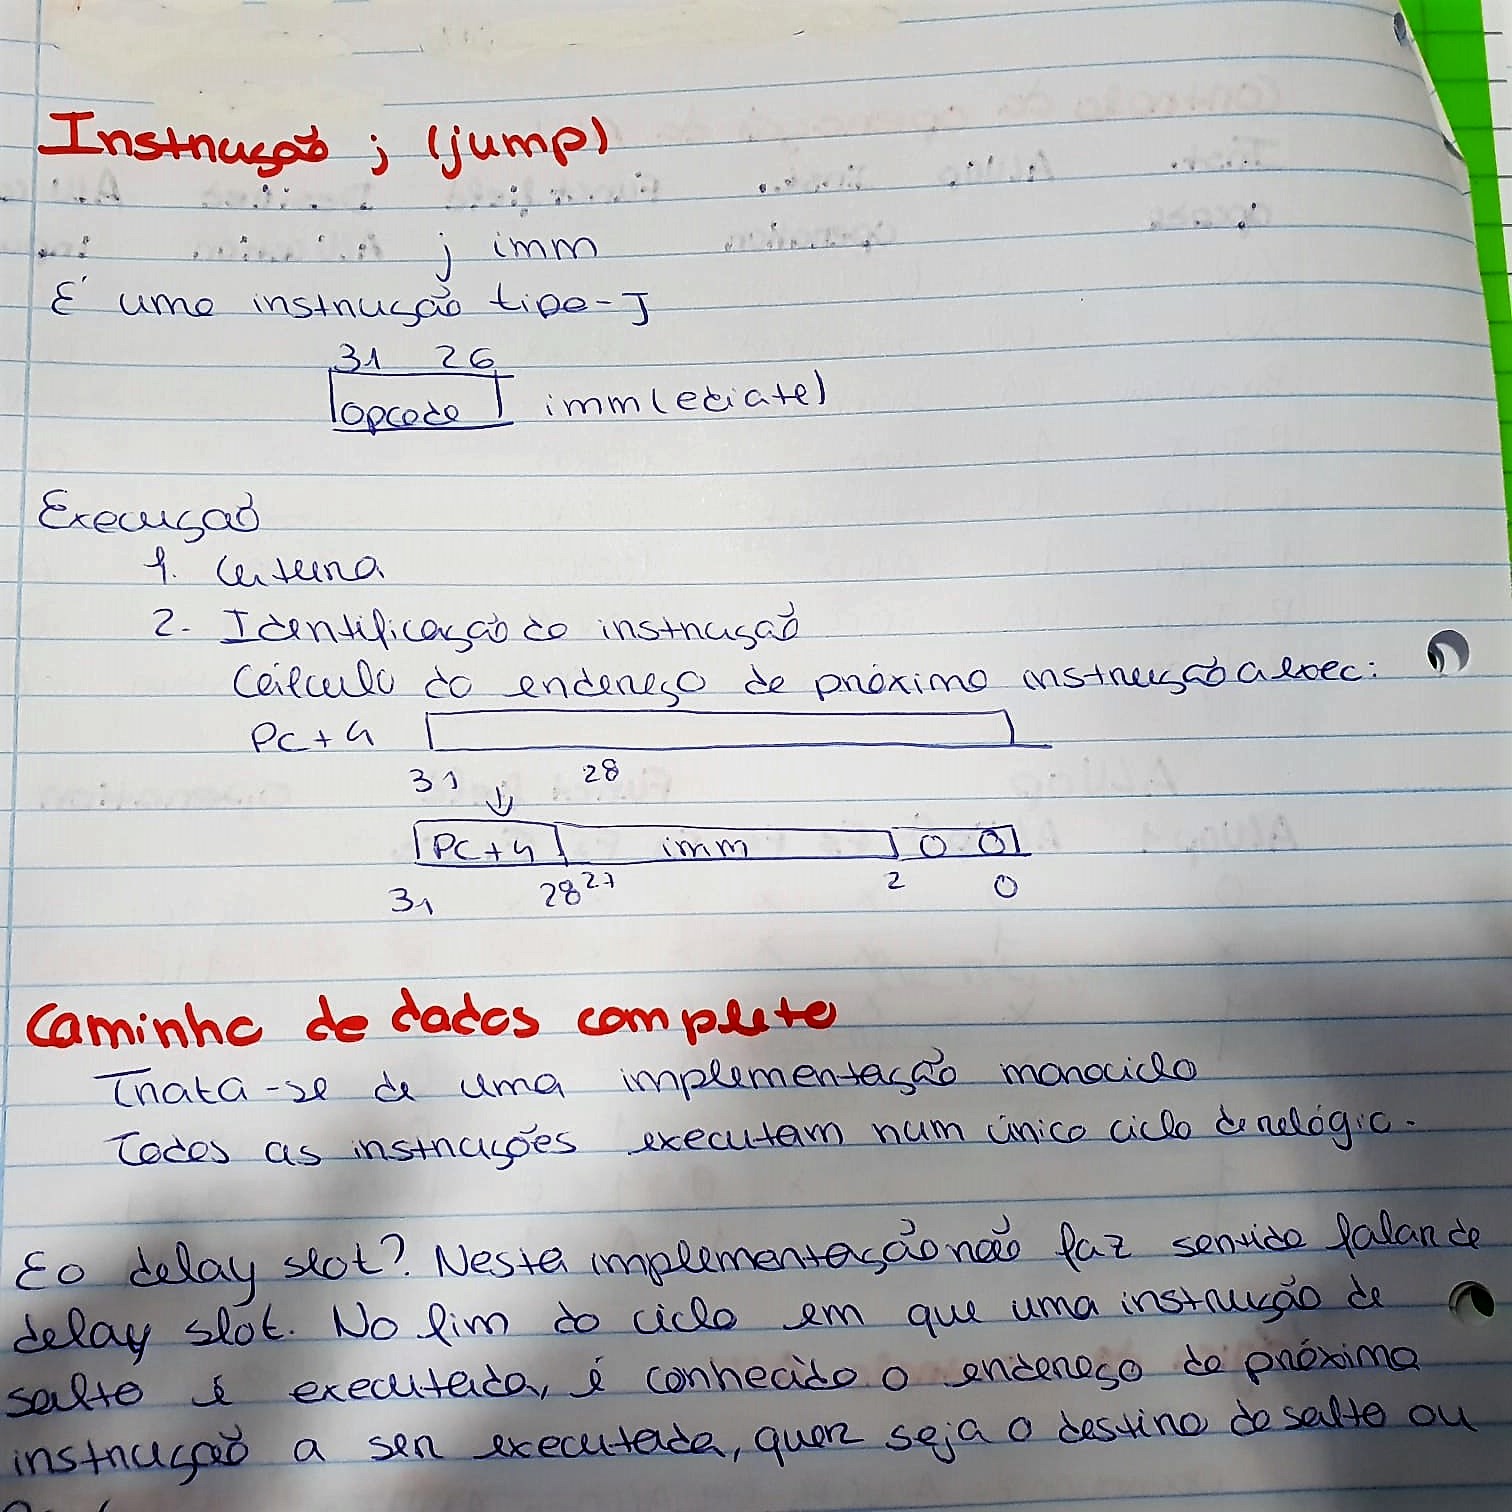 Instrução j (jump)
j imm
É uma instrução tipo-J
31 26
opcode imm(ediate)
Execução
1. Leitura
2. Identificação da instrução
Cálculo do endereço da próxima instrução a exec:
PC+4
31 28
PC+4 imm 0 0
31 28 27 2 0
Caminho de dados completo
Trata-se de uma implementação monociclo
Todas as instruções executam num único ciclo de relógio.
E o delay slot? Nesta implementação não faz sentido falar de
delay slot. No fim do ciclo em que uma instrução de
salto é executada, é conhecido o endereço da próxima
instrução a ser executada, quer seja o destino do salto ou